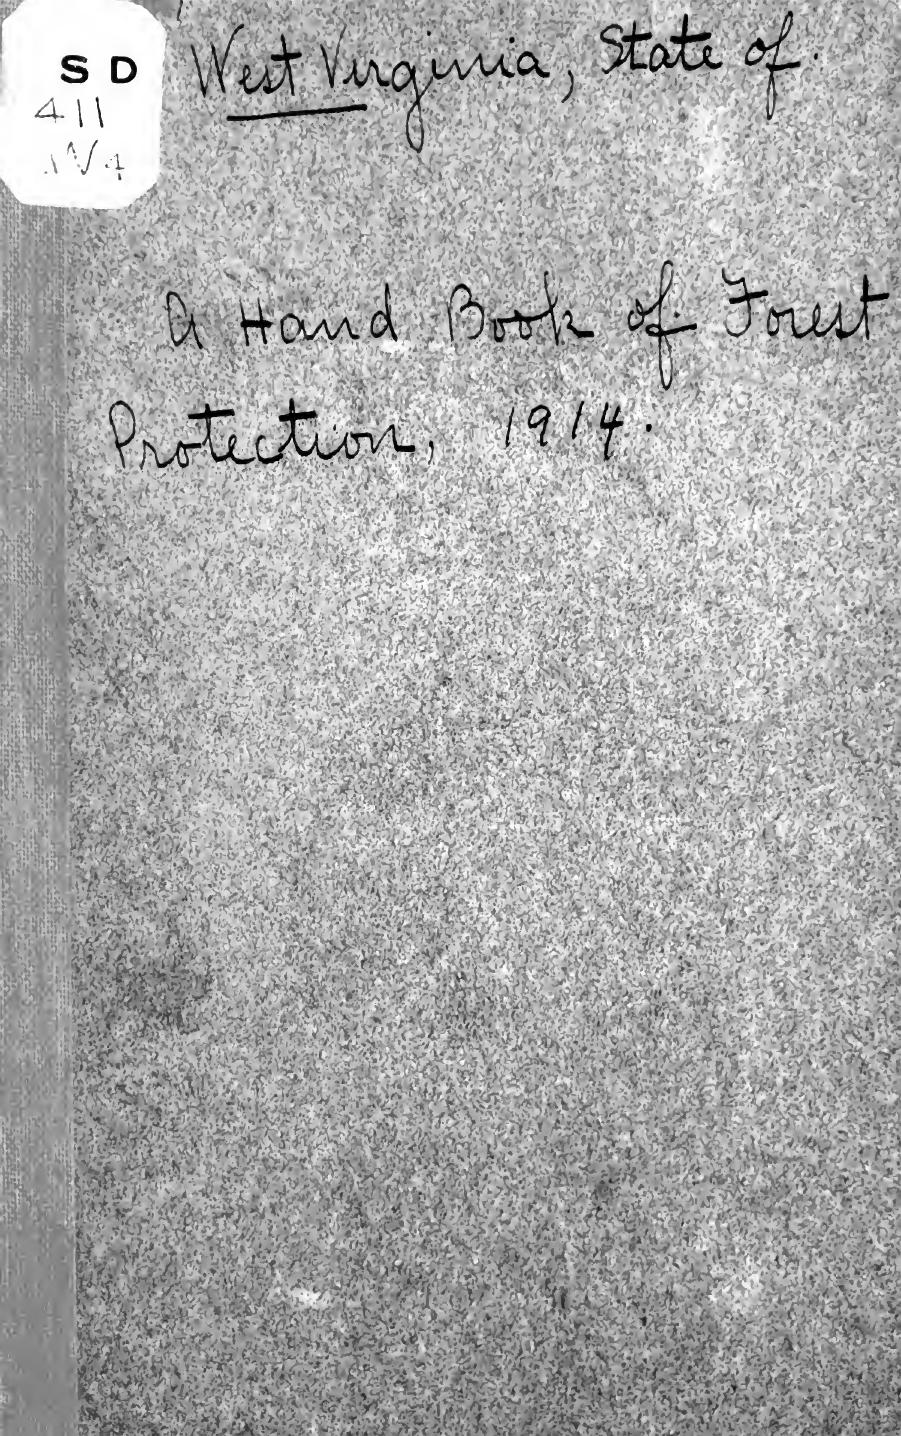 S D
411
.W4
West Virginia, State of.
A Hand Book of Forest
Protection, 1914.